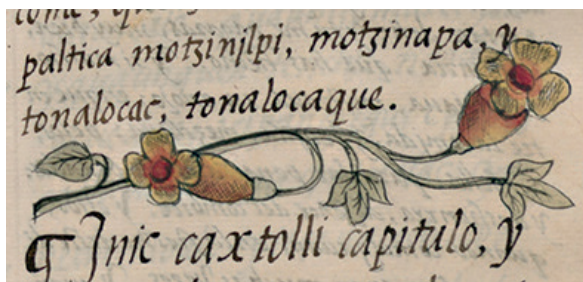 paltica motzinjlpi, motzinapa, y
tonalocac, tonalocaque.
¶ Jnic caxtolli capitulo, y